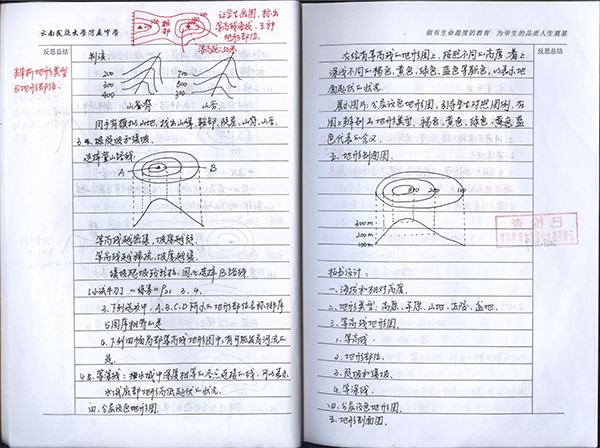 云南民族大学附属中学
让学生画图，标出
等高线陡坡、五种
地形部位。
反思总结
判读
200
300
400
山脊
700
600
500
山谷
用手背模拟山地，找出山峰、鞍部、陡崖、山脊、山谷。
3、陡坡和缓坡
选择登山路线。
A
B
等高线越密集，坡度越陡
等高线越稀疏，坡度越缓
缓坡爬坡较轻松，因此选择B路线
【小试牛刀】《绿基》P21 3. 4.
3、下列选项中，A、B、C、D所示的地形部位名称排序
与图序相符的是
4、下列四幅局部等高线地形图中，有可能发育河流的
是
等深线：海水域中深度相等的各点连接的线，可以表示
水域底部地形高低起伏的状况
四、分层设色地形图
做有生命温度的教育 为学生的品质人生奠基
反思总结
在绘有等高线的地形图上，按照不同的高度，着上
深浅不同的褐色、黄色、绿色、蓝色等颜色，以表示地
面起伏的状况。
展示图片：分层设色地形图，引导学生对照图例，在
图上辨别出地形类型，褐色、黄色、绿色、蓝色
色代表的含义。
五、地形剖面图
300
200
100
300m
200m
100m
已检查
板书设计：
一、海拔和相对高度
二、地形类型：高原、平原、山地、丘陵、盆地
三、等高线地形图
1、等高线
2、地形部位
3、陡坡和缓坡
4、等深线
四、分层设色地形图
五、地形剖面图